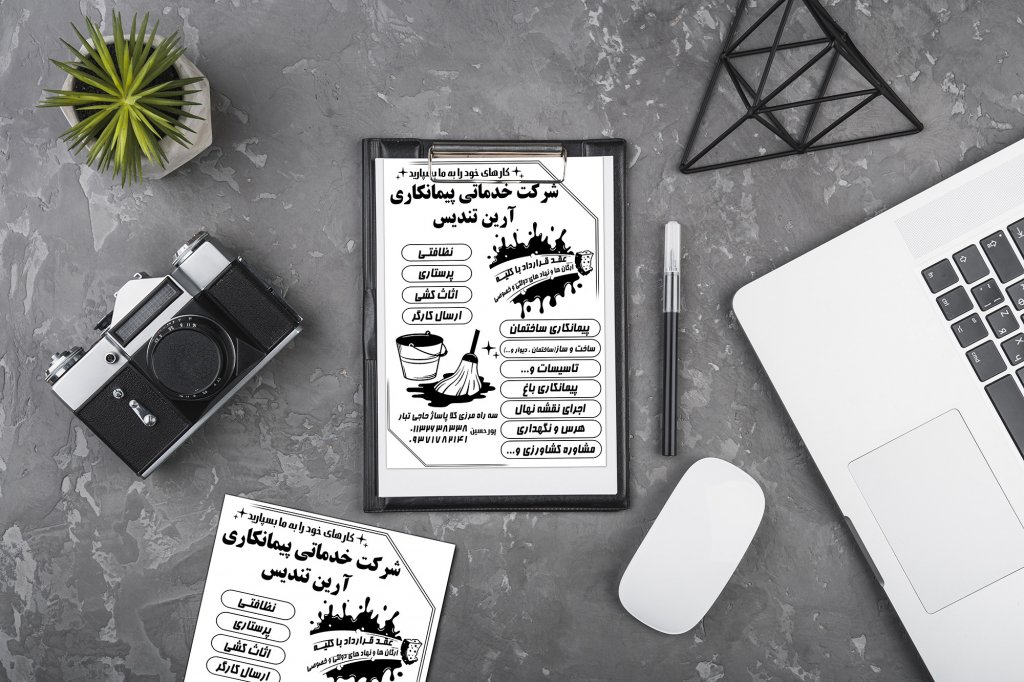 کارهای خود را به ما بسپارید
شرکت خدماتی پیمانکاری
آرین تندیس
نظافتی
پرستاری
اثاث کشی
ارسال کارگر
عقد قرارداد با کلیه
ارگان ها و نهاد های دولتی و خصوصی
پیمانکاری ساختمان
ساخت و ساز(ساختمان ، دیوار و...)
تاسیسات و...
پیمانکاری باغ
اجرای نقشه نهال
هرس و نگهداری
مشاوره کشاورزی و...
سه راه مرزی کلا پاساژ حاجی تبار
پورحسین
۰۱۱۳۲۲۳۸۳۳۸
۰۹۳۷۱۷۸۲۱۴۱
کارهای خود را به ما بسپارید
شرکت خدماتی پیمانکاری
آرین تندیس
نظافتی
پرستاری
اثاث کشی
ارسال کارگر
عقد قرارداد با کلیه
ارگان ها و نهاد های دولتی و خصوصی